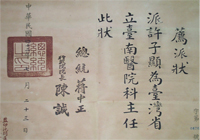 薦派狀
派許子顯為臺灣省
立臺南醫院科主任
此狀
總統蔣中正
院長陳誠
中華民國
月二十三日